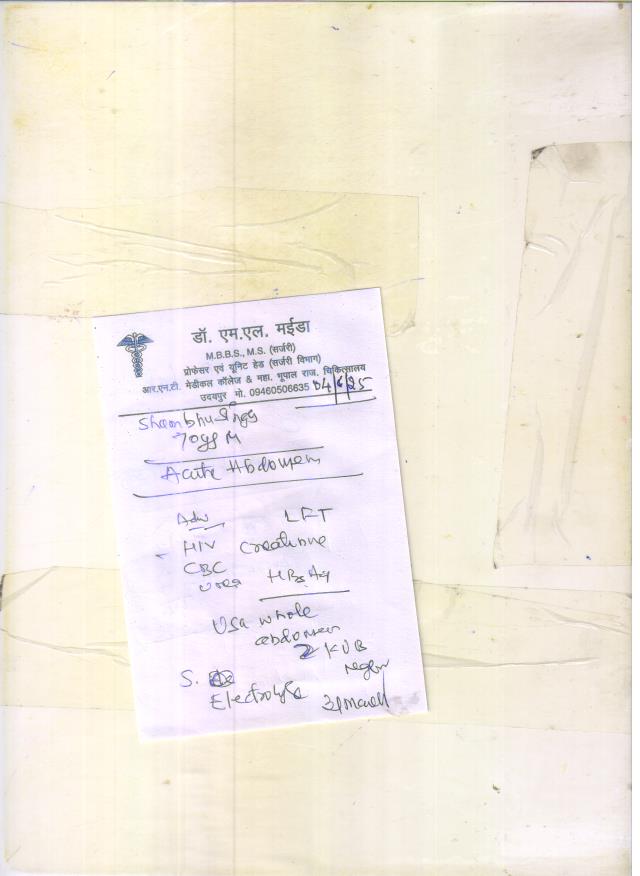 डॉ. एम.एल. मईडा
M.B.B.S., M.S. (सर्जरी)
प्रोफेसर एवं यूनिट हेड (सर्जरी विभाग)
आर.एन.टी. मेडीकल कॉलेज & महा. भूपाल राज. चिकित्सालय
उदयपुर मो. 09460506635 04/6/25
Shambhu Singg
70yrs M
Acute Abdomen
Adv
LFT
HIV Creatinine
CBC
Urea HBsAg
Usg whole
abdomen
KUB
region
S.
Electrolyte